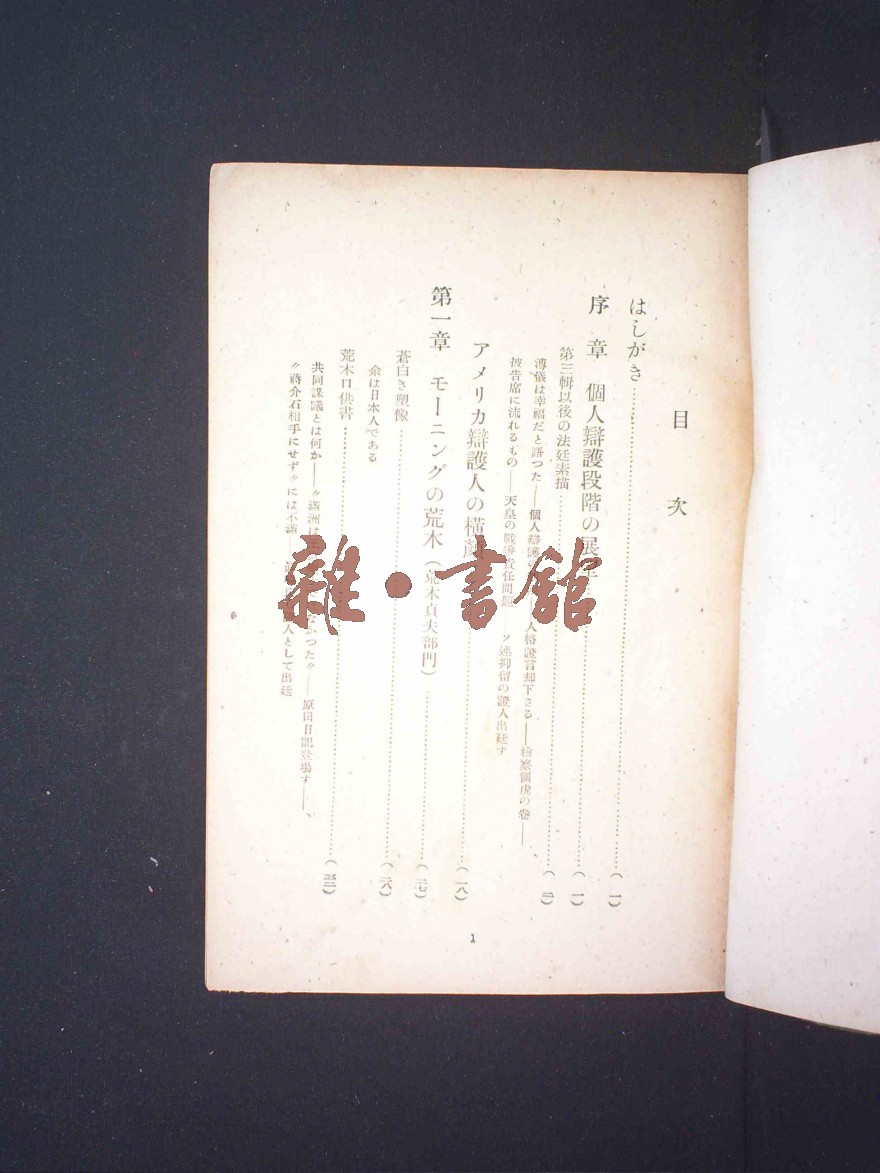 目次
はしがき……(一)
序章 個人辯護段階の展望……(一)
第三輯以後の法廷素描……(二)
溥儀は幸福だと語つた――個人辯護の 人格證言却下さる――檢察側虎の卷――
被告席に流れるもの――天皇の戰爭責任問題――ソ連抑留の證人出廷す
アメリカ辯護人の橫顏……(一八)
第一章 モーニングの荒木(荒木貞夫部門)……(二七)
蒼白き塑像……(二八)
余は日本人である
荒木口供書……(三二)
共同謀議とは何か――〃滿洲は なかつた〃――原田日記登場す――
〃蔣介石相手にせず〃には不滿 人として出廷
1
雜·書館